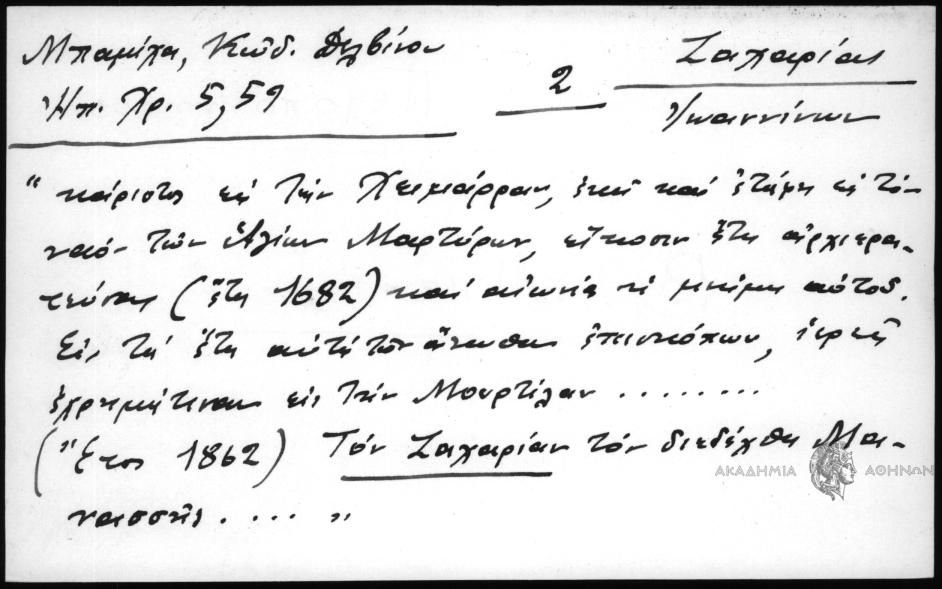 Μπαμίχα, Κώδ. Δελβίνου
Ἠπ. Χρ. 5,59
2
Ζαχαρίας
Ἰωαννίνων
"κάριστος εἰς τήν Χειμάρραν, ἐκεῖ καί ἐτάφη εἰς τόν
ναόν τῶν Ἁγίων Μαρτύρων, εἴκοσιν ἔτη ἀρχιερα-
τεύσας (ἔτη 1682) καί αἰωνία ἡ μνήμη αὐτοῦ.
Εἰς τά ἔτη αὐτά τῶν ἄνωθεν ἐπισκόπων, ἱερεῖς
ἐχρημάτισαν εἰς τήν Μουρτίλαν ........
(Ἔτος 1862) Τόν Ζαχαρίαν τόν διεδέχθη Μα-
νασσῆς .... "
ΑΚΑΔΗΜΙΑ ΑΘΗΝΩΝ